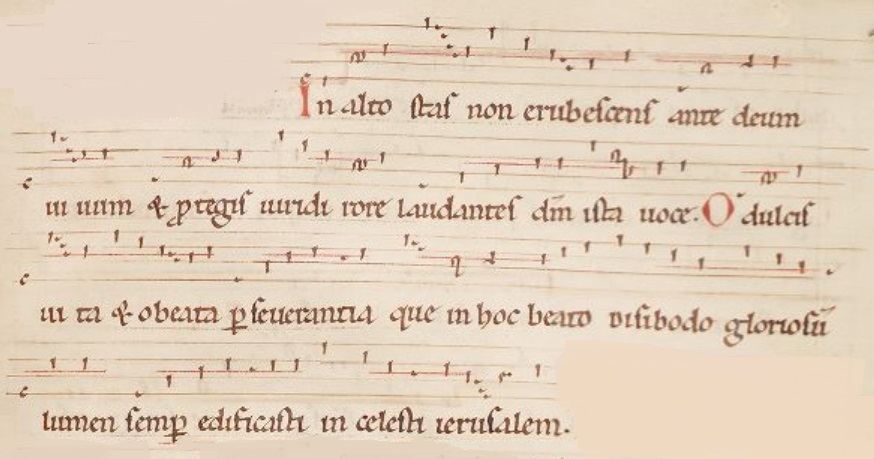 In alto staſ non erubeſcenſ ante deum
uiuum & ꝓtegiſ uiridi rore laudanteſ dm̄ iſta uoce. O dulciſ
uita & o beata ꝑſeuerantia que in hoc beato diſibodo glorioſū
lumen ſemꝑ edificaſti in celeſti ieruſalem.